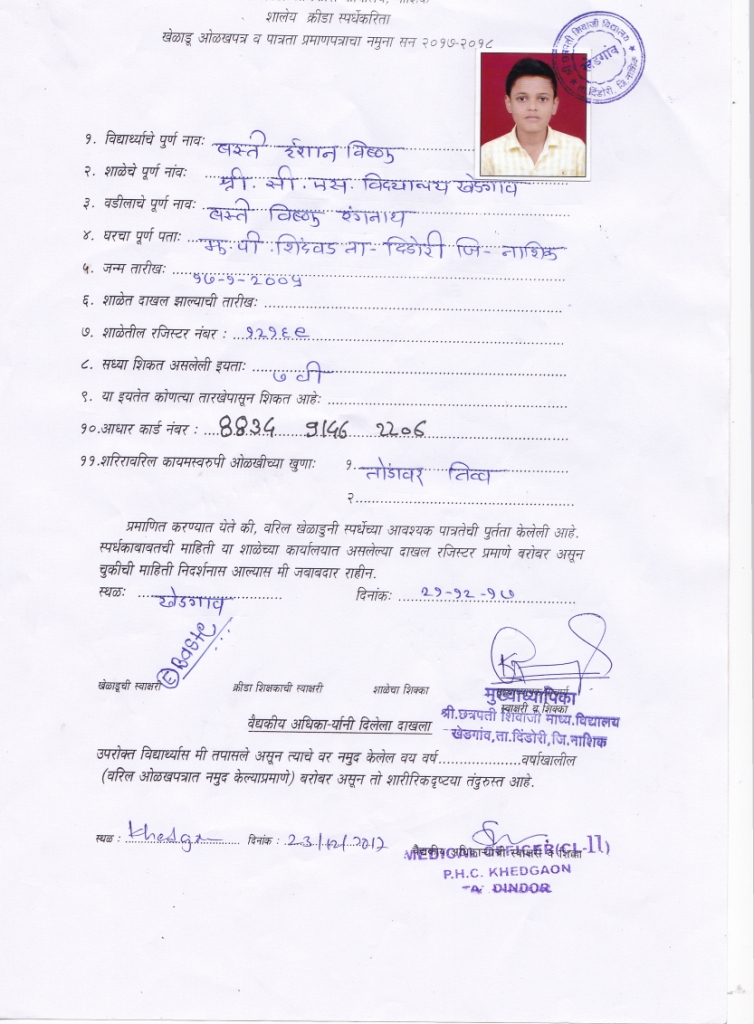 शालेय क्रीडा स्पर्धेकरिता
खेळाडू ओळखपत्र व पात्रता प्रमाणपत्राचा नमुना सन २०१७-२०१८
श्री छत्रपती शिवाजी विद्यालय खेडगांव ता. दिंडोरी, जि. नाशिक
१. विद्यार्थ्याचे पुर्ण नावः बस्ते ईशान विष्णु
२. शाळेचे पूर्ण नांवः श्री. सी. एस. विद्यालय खेडगाव
३. वडीलाचे पूर्ण नावः बस्ते विष्णु रंगनाथ
४. घरचा पूर्ण पताः मु. पो. शिंदवड ता- दिंडोरी जि- नाशिक
५. जन्म तारीखः १७-१-२००५
६. शाळेत दाखल झाल्याची तारीखः
७. शाळेतील रजिस्टर नंबर : १२१६९
८. सध्या शिकत असलेली इयताः ७ वी
९. या इयतेत कोणत्या तारखेपासून शिकत आहेः
१०.आधार कार्ड नंबर : 8834 9146 2206
११.शरिरावरिल कायमस्वरुपी ओळखीच्या खुणाः १. तोंडावर तिळ
२.
प्रमाणित करण्यात येते की, वरिल खेळाडुनी स्पर्धेच्या आवश्यक पात्रतेची पुर्तता केलेली आहे.
स्पर्धकाबाबतची माहिती या शाळेच्या कार्यालयात असलेल्या दाखल रजिस्टर प्रमाणे बरोबर असून
चुकीची माहिती निदर्शनास आल्यास मी जबाबदार राहीन.
स्थळः खेडगाव दिनांकः २१-१२-१७
EBaste
खेळाडूची स्वाक्षरी क्रीडा शिक्षकाची स्वाक्षरी शाळेचा शिक्का स्वाक्षरी व शिक्का
मुख्याध्यापिका
श्री.छत्रपती शिवाजी माध्य.विद्यालय
खेडगांव,ता.दिंडोरी,जि.नाशिक
वैद्यकीय अधिका-यांनी दिलेला दाखला
उपरोक्त विद्यार्थ्यास मी तपासले असून त्याचे वर नमुद केलेल वय वर्ष वर्षाखालील
(वरिल ओळखपत्रात नमुद केल्याप्रमाणे) बरोबर असून तो शारीरिकदृष्टया तंदुरुस्त आहे.
स्थळ : Khedgaon दिनांक : 23/12/2017
वैद्यकीय अधिकाऱ्यांची स्वाक्षरी व शिक्का
MEDICAL OFFICER (CL-II)
P.H.C. KHEDGAON
DINDOR